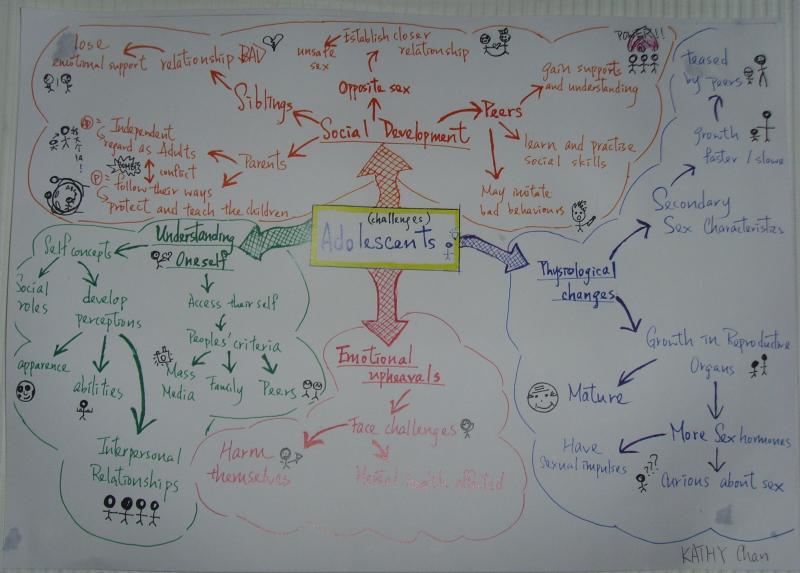 (challenges)
Adolescents
Social Development
Siblings
relationship BAD
lose
emotional support
Opposite sex
unsafe
sex
Establish closer
relationship
Peers
POWER!!
gain supports
and understanding
learn and practise
social skills
May imitate
bad behaviours
Parents
Independent
regard as Adults
conflict
follow their ways
protect and teach the children
Understanding
Oneself
Self concepts
Social
roles
develop
perceptions
apparence
abilities
Interpersonal
Relationships
Access their self
Peoples' criteria
Mass
Media
Family
Peers
Emotional
upheavals
Face challenges
Harm
themselves
affected
Physiological
changes
Secondary
Sex Characteristics
growth
faster / slower
teased
by peers
Growth in Reproductive
Organs
Mature
More Sex hormones
Have
Sexual impulses
???
Curious about sex
KATHY Chan